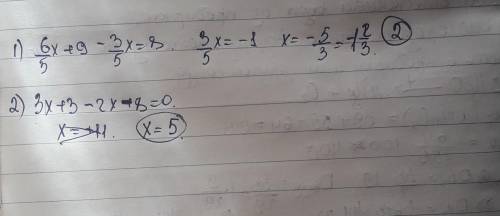 1) 6/5x+9-3/5x=8. 3/5x=-1 x=-5/3=-1 2/3. 2
2) 3x+3-2x-8=0.
x=-11. x=5